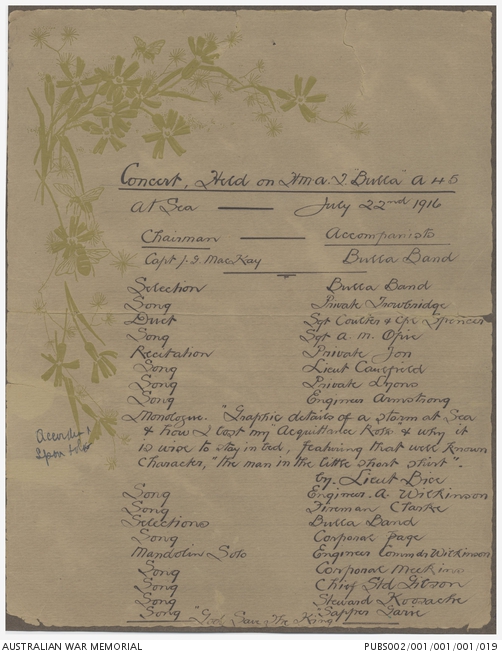 Concert, Held on H.M.A.T. "Bulla" A 45
At Sea — July 22nd 1916
Chairman — Accompanists
Capt J. I MacKay Bulla Band
Selection Bulla Band
Song Private Trowbridge
Duet Sgt Coulter & Cpl Spencer
Song Sgt A. M. Opie
Recitation Private Jon
Song Lieut Caulfield
Song Private Lyons
Song Engineer Armstrong
Monologue. "Graphic details of a storm at Sea
& how I lost my "Acquittance Role" & why it
is wise to stay in bed, featuring that well known
Character, "the man in the little short shirt".
by. Lieut Dice
Song Engineer A. Wilkinson
Song Fireman Clarke
Selections Bulla Band
Song Corporal Page
Mandolin Solo Engineer Wilkinson
Song Corporal Meekins
Song Chief Std Gibson
Song Steward
Song Sapper
"God Save The King"
AUSTRALIAN WAR MEMORIAL PUBS002/001/001/001/019